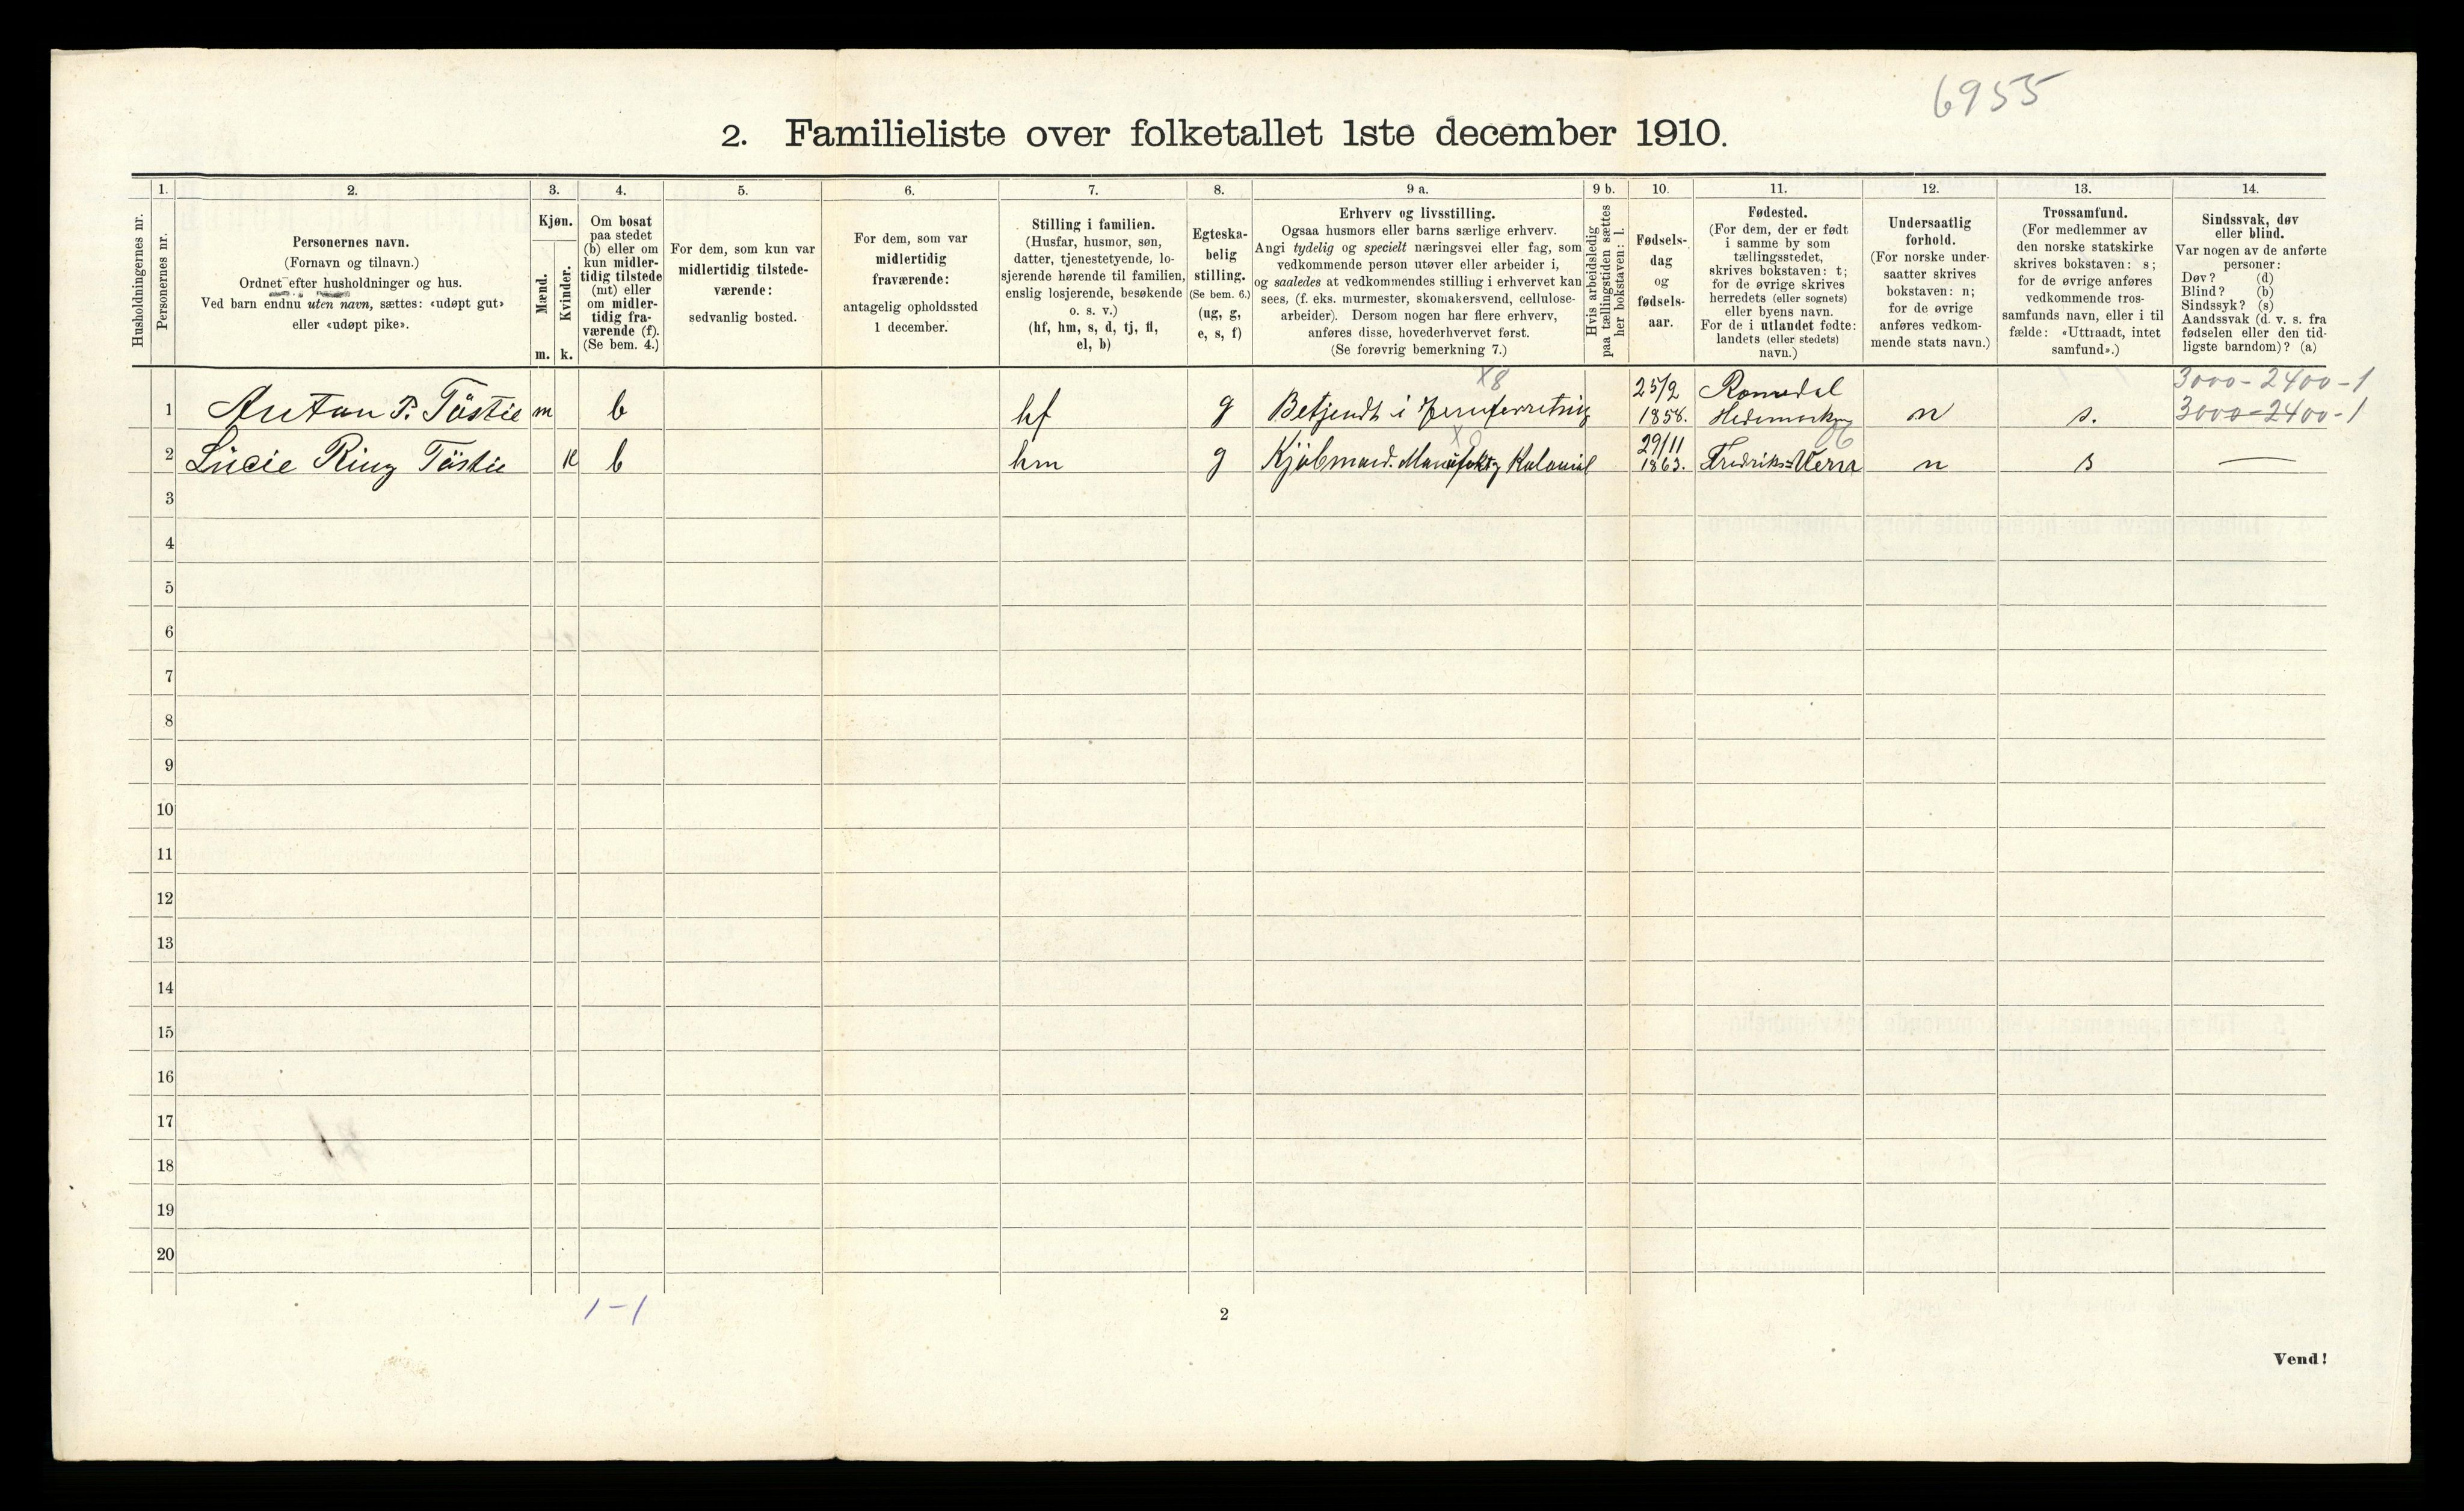 6955
2. Familieliste over folketallet 1ste december 1910.
1. 2. 3. 4. 5. 6. 7. 8. 9 a. 9 b. 10. 11. 12. 13. 14.
Husholdningernes nr.
Personernes nr.
Personernes navn.
(Fornavn og tilnavn.)
Ordnet efter husholdninger og hus.
Ved barn endnu uten navn, sættes: «udøpt gut»
eller «udøpt pike».
Kjøn.
Mænd.
Kvinder.
m. k.
Om bosat
paa stedet
(b) eller om
kun midler-
tidig tilstede
(mt) eller
om midler-
tidig fra-
værende (f).
(Se bem. 4.)
For dem, som kun var
midlertidig tilstede-
værende:
sedvanlig bosted.
For dem, som var
midlertidig
fraværende:
antagelig opholdssted
1 december.
Stilling i familien.
(Husfar, husmor, søn,
datter, tjenestetyende, lo-
sjerende hørende til familien,
enslig losjerende, besøkende
o. s. v.)
(hf, hm, s, d, tj, fl,
el, b)
Egteska-
belig
stilling.
(Se bem. 6.)
(ug, g,
e, s, f)
Erhverv og livsstilling.
Ogsaa husmors eller barns særlige erhverv.
Angi tydelig og specielt næringsvei eller fag, som
vedkommende person utøver eller arbeider i,
og saaledes at vedkommendes stilling i erhvervet kan
sees, (f. eks. murmester, skomakersvend, cellulose-
arbeider). Dersom nogen har flere erhverv,
anføres disse, hovederhvervet først.
(Se forøvrig bemerkning 7.)
Hvis arbeidsledig
paa tællingstiden sættes
her bokstaven: l.
Fødsels-
dag
og
fødsels-
aar.
Fødested.
(For dem, der er født
i samme by som
tællingsstedet,
skrives bokstaven: t;
for de øvrige skrives
herredets (eller sognets)
eller byens navn.
For de i utlandet fødte:
landets (eller stedets)
navn.)
Undersaatlig
forhold.
(For norske under-
saatter skrives
bokstaven: n;
for de øvrige
anføres vedkom-
mende stats navn.)
Trossamfund.
(For medlemmer av
den norske statskirke
skrives bokstaven: s;
for de øvrige anføres
vedkommende tros-
samfunds navn, eller i til
fælde: «Uttraadt, intet
samfund».)
Sindssvak, døv
eller blind.
Var nogen av de anførte
personer:
Døv? (d)
Blind? (b)
Sindssyk? (s)
Aandssvak (d. v. s. fra
fødselen eller den tid-
ligste barndom)? (a)
x8 25/2 Romedal 3000-2400-1
1 Anton P. Töstie m b hf g Betjendt i 1858. Hedemarken n s. 3000-2400-1
29/11
2 Lücie Ring Töstie k b hm g Kjøbmand. Manufakt. Kolonial 1863. Fredriks-Værn n s —
3
4
5
6
7
8
9
10
11
12
13
14
15
16
17
18
19
20
1-1
2
Vend!